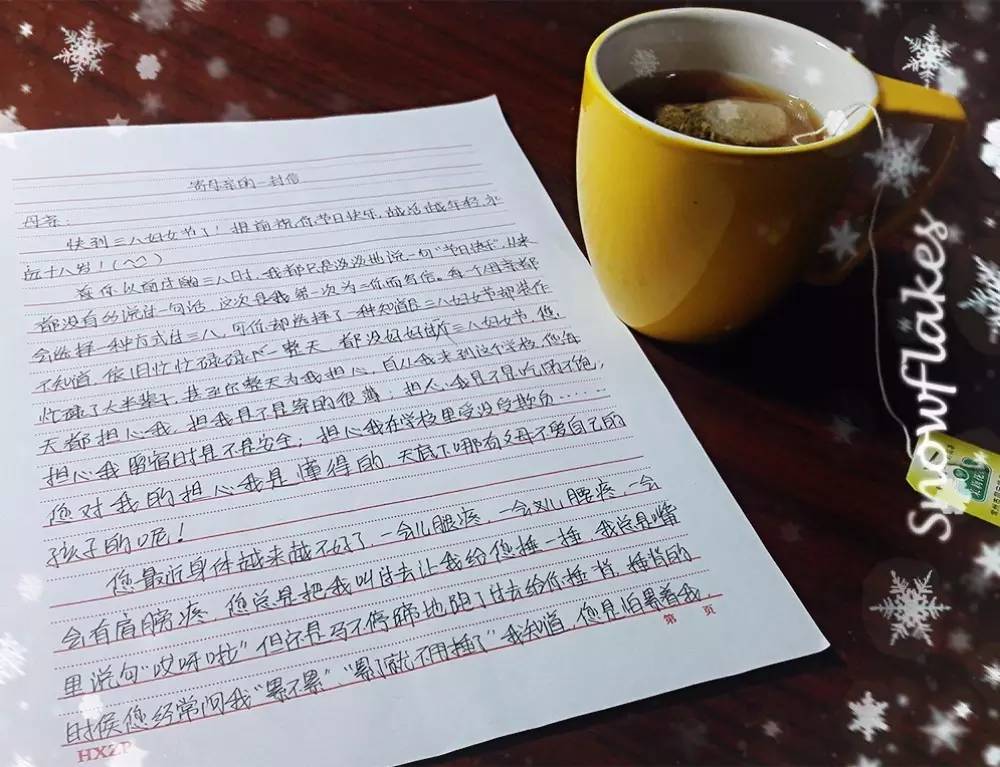 寄母亲的一封信
母亲:
快到三八妇女节了！提前祝你节日快乐,越活越年轻,永
远十八岁！(^^)
在你以前过的三八日时,我都只是淡淡地说一句"节日快乐",从来
都没有多说过一句话,这次是我第一次为三八而写信。每个母亲都
会选择一种方式过三八,可你却选择了一种知道是三八妇女节却装作
不知道,依旧忙忙碌碌一整天,都没好好过三八妇女节,您
忙碌了大半辈子,甚至还整天为我担心,自从我来到这个学校,您每
天都担心我,担我是不是穿的很薄;担心我是不是吃的不饱;
担心我留宿时是不是安全;担心我在学校里受没受欺负……
您对我的担心我是懂得的,天底下哪有父母不爱自己的
孩子的呢!
您最近身体越来越不好了,一会儿腿疼,一会又儿腰疼,一会
会有肩膀疼,您总是把我叫过去让我给您捶一捶,我总是嘴
里说句"哎呀啦"但还是马不停蹄地跑了过去给你捶背,捶背的
时候您经常问我"累不累""累了就不用捶了"我知道,您是怕累着我,
第 页
HXZP
Snowflakes
茉莉花